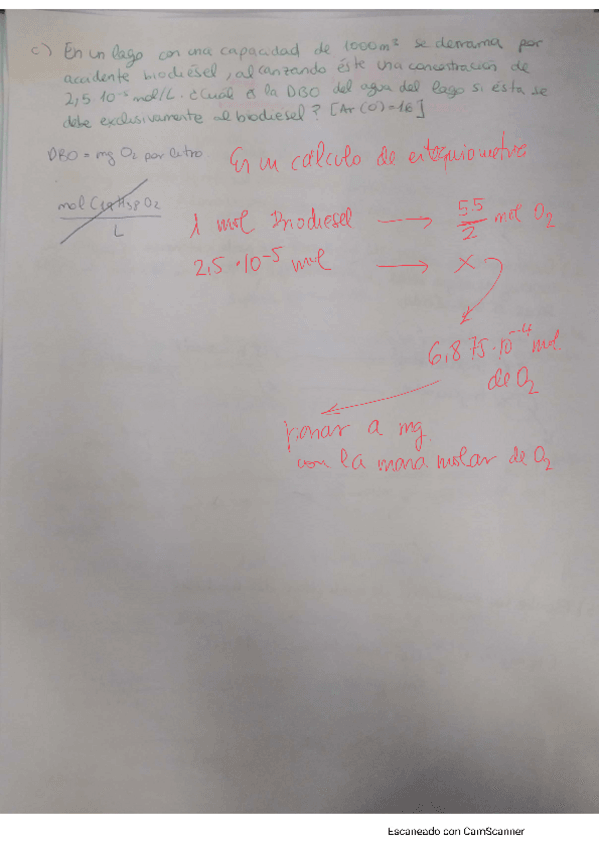 c) En un lago con una capacidad de 1000m³ se derrama por
accidente biodiésel, alcanzando éste una concentración de
2,5·10⁻⁵ mol/L. ¿Cuál es la DBO del agua del lago si ésta se
debe exclusivamente al biodiesel? [Ar(O)=16]
DBO = mg O₂ por litro.
Es un cálculo de estequiometría
mol C₁₉H₃₈O₂
L
1 mol Biodiesel → 55/2 mol O₂
2,5·10⁻⁵ mol → X
6,875·10⁻⁴ mol
de O₂
pasar a mg
con la masa molar de O₂
Escaneado con CamScanner